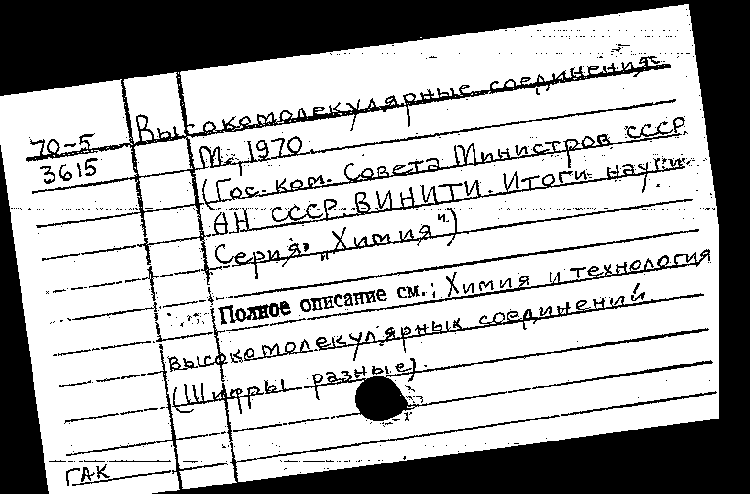 70-5
3615
Высокомолекулярные соединения.
М., 1970.
(Гос. ком. Совета Министров СССР.
АН СССР. ВИНИТИ. Итоги науки.
Серия "Химия".)
Полное описание см.; Химия и технология
высокомолекулярных соединений.
(Шифры разные).
ГАК